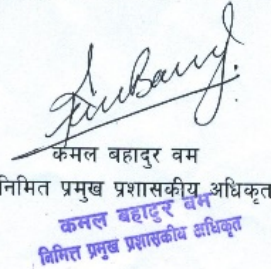 कमल बहादुर वम
निमित प्रमुख प्रशासकीय अधिकृत
कमल बहादुर वम
निमित्त प्रमुख प्रशासकीय अधिकृत